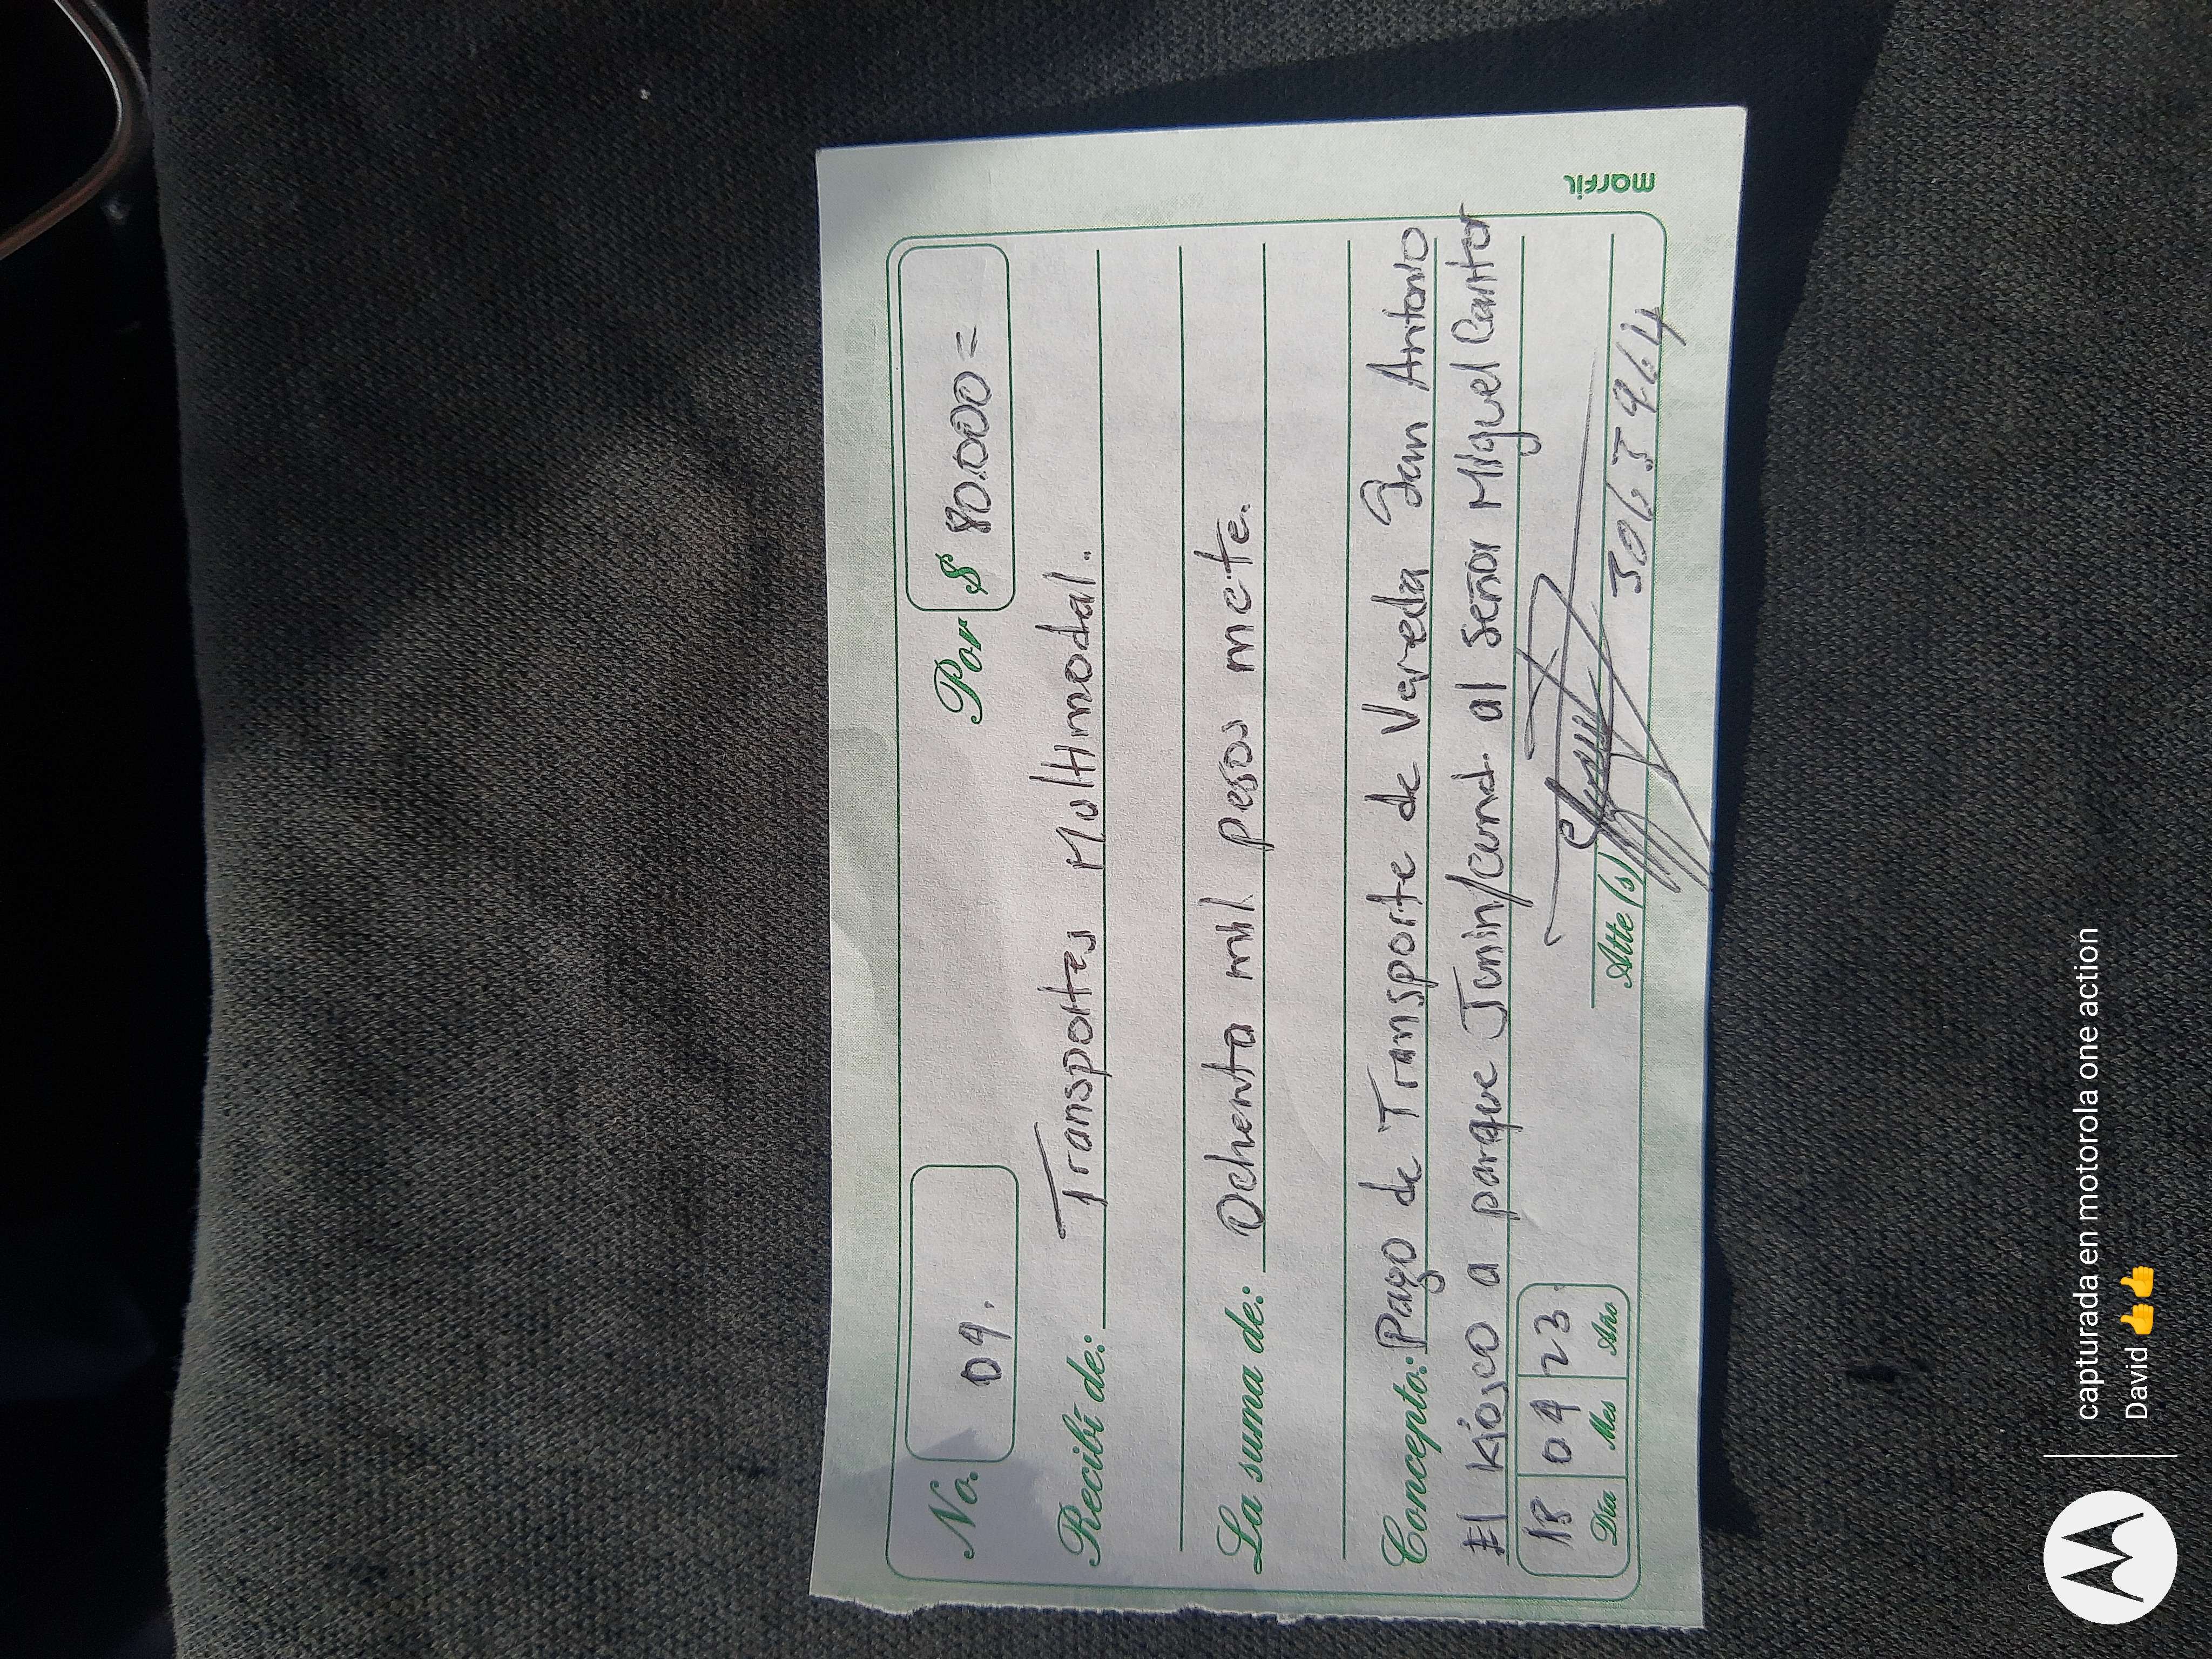 No. 04. Por $ 80.000=
Recibí de: Transportes Multimodal.
La suma de: Ochenta mil pesos mcte.
Concepto: Pago de Transporte de Vereda San Antonio
El Kiosco a parque Junin/cund. al señor Miguel Cantor
18 04 23
Día Mes Año
Atte (s) 3063964
marfil
capturada en motorola one action
David 👍👍